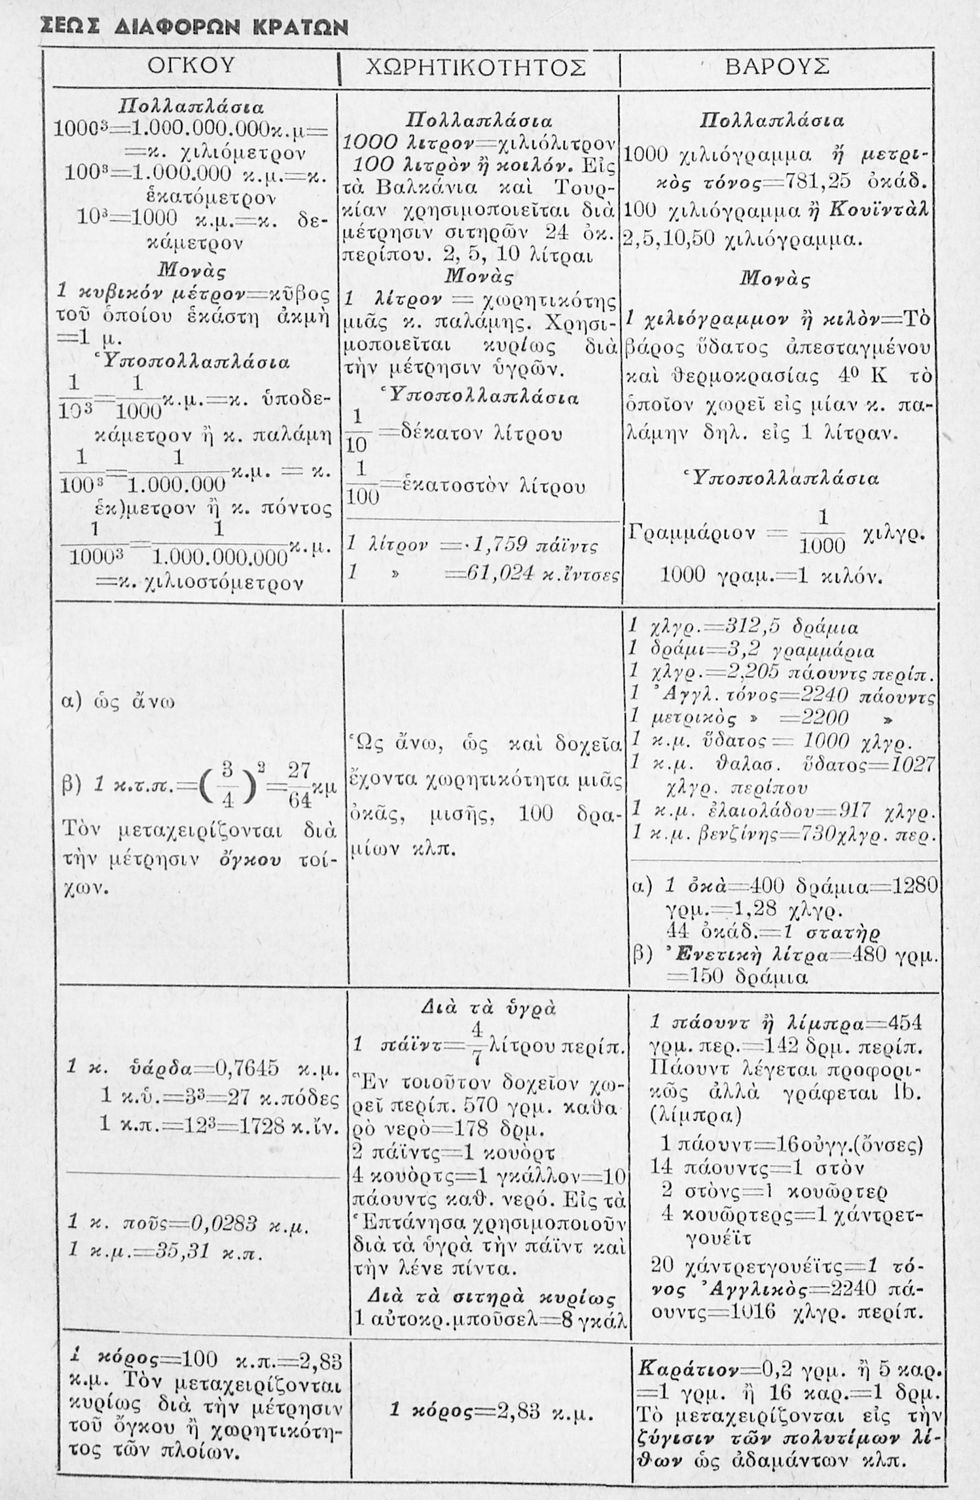 ΣΕΩΣ ΔΙΑΦΟΡΩΝ ΚΡΑΤΩΝ
ΟΓΚΟΥ
Πολλαπλάσια
1000³=1.000.000.000κ.μ=
=κ. χιλιόμετρον
100³=1.000.000 κ.μ.=κ.
ἑκατόμετρον
10³=1000 κ.μ.=κ. δε-
κάμετρον
Μονὰς
1 κυβικόν μέτρον=κῦβος
τοῦ ὁποίου ἑκάστη ἀκμὴ
=1 μ.
Ὑποπολλαπλάσια
1/10³=1/1000κ.μ.=κ. ὑποδε-
κάμετρον ἢ κ. παλάμη
1/100³=1/1.000.000κ.μ. = κ.
ἑκ)μετρον ἢ κ. πόντος
1/1000³=1/1.000.000.000κ.μ.
=κ. χιλιοστόμετρον
ΧΩΡΗΤΙΚΟΤΗΤΟΣ
Πολλαπλάσια
1000 λιτρον=χιλιόλιτρον
100 λιτρὸν ἢ κοιλόν. Εἰς
τὰ Βαλκάνια καὶ Τουρ-
κίαν χρησιμοποιεῖται διὰ
μέτρησιν σιτηρῶν 24 ὀκ.
περίπου. 2, 5, 10 λίτραι
Μονὰς
1 λίτρον = χωρητικότης
μιᾶς κ. παλάμης. Χρησι-
μοποιεῖται κυρίως διὰ
τὴν μέτρησιν ὑγρῶν.
Ὑποπολλαπλάσια
1/10=δέκατον λίτρου
1/100=ἑκατοστὸν λίτρου
1 λίτρον =1,759 πάϊντς
1 » =61,024 κ.ἴντσες
ΒΑΡΟΥΣ
Πολλαπλάσια
1000 χιλιόγραμμα ἤ μετρι-
κὸς τόνος=781,25 ὀκάδ.
100 χιλιόγραμμα ἢ Κουϊντὰλ
2,5,10,50 χιλιόγραμμα.
Μονὰς
1 χιλιόγραμμον ἢ κιλὸν=Τὸ
βάρος ὕδατος ἀπεσταγμένου
καὶ θερμοκρασίας 4⁰ Κ τὸ
ὁποῖον χωρεῖ εἰς μίαν κ. πα-
λάμην δηλ. εἰς 1 λίτραν.
Ὑποπολλαπλάσια
Γραμμάριον = 1/1000 χιλγρ.
1000 γραμ.=1 κιλόν.
α) ὡς ἄνω
β) 1 κ.τ.π.=(3/4)²=27/64κμ
Τὸν μεταχειρίζονται διὰ
τὴν μέτρησιν ὄγκου τοί-
χων.
Ὡς ἄνω, ὡς καὶ δοχεῖα
ἔχοντα χωρητικότητα μιᾶς
ὀκᾶς, μισῆς, 100 δρα-
μίων κλπ.
1 χλγρ.=312,5 δράμια
1 δράμι=3,2 γραμμάρια
1 χλγρ.=2,205 πάουντς περίπ.
1 Ἀγγλ. τόνος=2240 πάουντς
1 μετρικὸς » =2200 »
1 κ.μ. ὕδατος= 1000 χλγρ.
1 κ.μ. θαλασ. ὕδατος=1027
χλγρ. περίπου
1 κ.μ. ἐλαιολάδου=917 χλγρ.
1 κ.μ. βενζίνης=730χλγρ. περ.
α) 1 ὀκὰ=400 δράμια=1280
γρμ.=1,28 χλγρ.
44 ὀκάδ.=1 στατὴρ
β) Ἐνετικὴ λίτρα=480 γρμ.
=150 δράμια
1 κ. ὑάρδα=0,7645 κ.μ.
1 κ.ὑ.=3³=27 κ.πόδες
1 κ.π.=12³=1728 κ.ἴν.
1 κ. ποῦς=0,0283 κ.μ.
1 κ.μ.=35,31 κ.π.
Διὰ τὰ ὑγρὰ
1 πάϊντ=4/7λίτρου περίπ.
Ἓν τοιοῦτον δοχεῖον χω-
ρεῖ περίπ. 570 γρμ. καθα
ρὸ νερὸ=178 δρμ.
2 πάϊντς=1 κουὸρτ
4 κουὸρτς=1 γκάλλον=10
πάουντς καθ. νερό. Εἰς τὰ
Ἑπτάνησα χρησιμοποιοῦν
διὰ τὰ ὑγρὰ τὴν πάϊντ καὶ
τὴν λένε πίντα.
Διὰ τὰ σιτηρὰ κυρίως
1 αὐτοκρ.μποῦσελ=8 γκάλ
1 πάουντ ἢ λίμπρα=454
γρμ. περ.=142 δρμ. περίπ.
Πάουντ λέγεται προφορι-
κῶς ἀλλὰ γράφεται lb.
(λίμπρα)
1 πάουντ=16οὐγγ.(ὄνσες)
14 πάουντς=1 στὸν
2 στὸνς=1 κουῶρτερ
4 κουῶρτερς=1 χάντρετ-
γουέϊτ
20 χάντρετγουέϊτς=1 τό-
νος Ἀγγλικὸς=2240 πά-
ουντς=1016 χλγρ. περίπ.
1 κόρος=100 κ.π.=2,83
κ.μ. Τὸν μεταχειρίζονται
κυρίως διὰ τὴν μέτρησιν
τοῦ ὄγκου ἢ χωρητικότη-
τος τῶν πλοίων.
1 κόρος=2,83 κ.μ.
Καράτιον=0,2 γρμ. ἢ 5 καρ.
=1 γρμ. ἢ 16 καρ.=1 δρμ.
Τὸ μεταχειρίζονται εἰς τὴν
ζύγισιν τῶν πολυτίμων λί-
θων ὡς ἀδαμάντων κλπ.